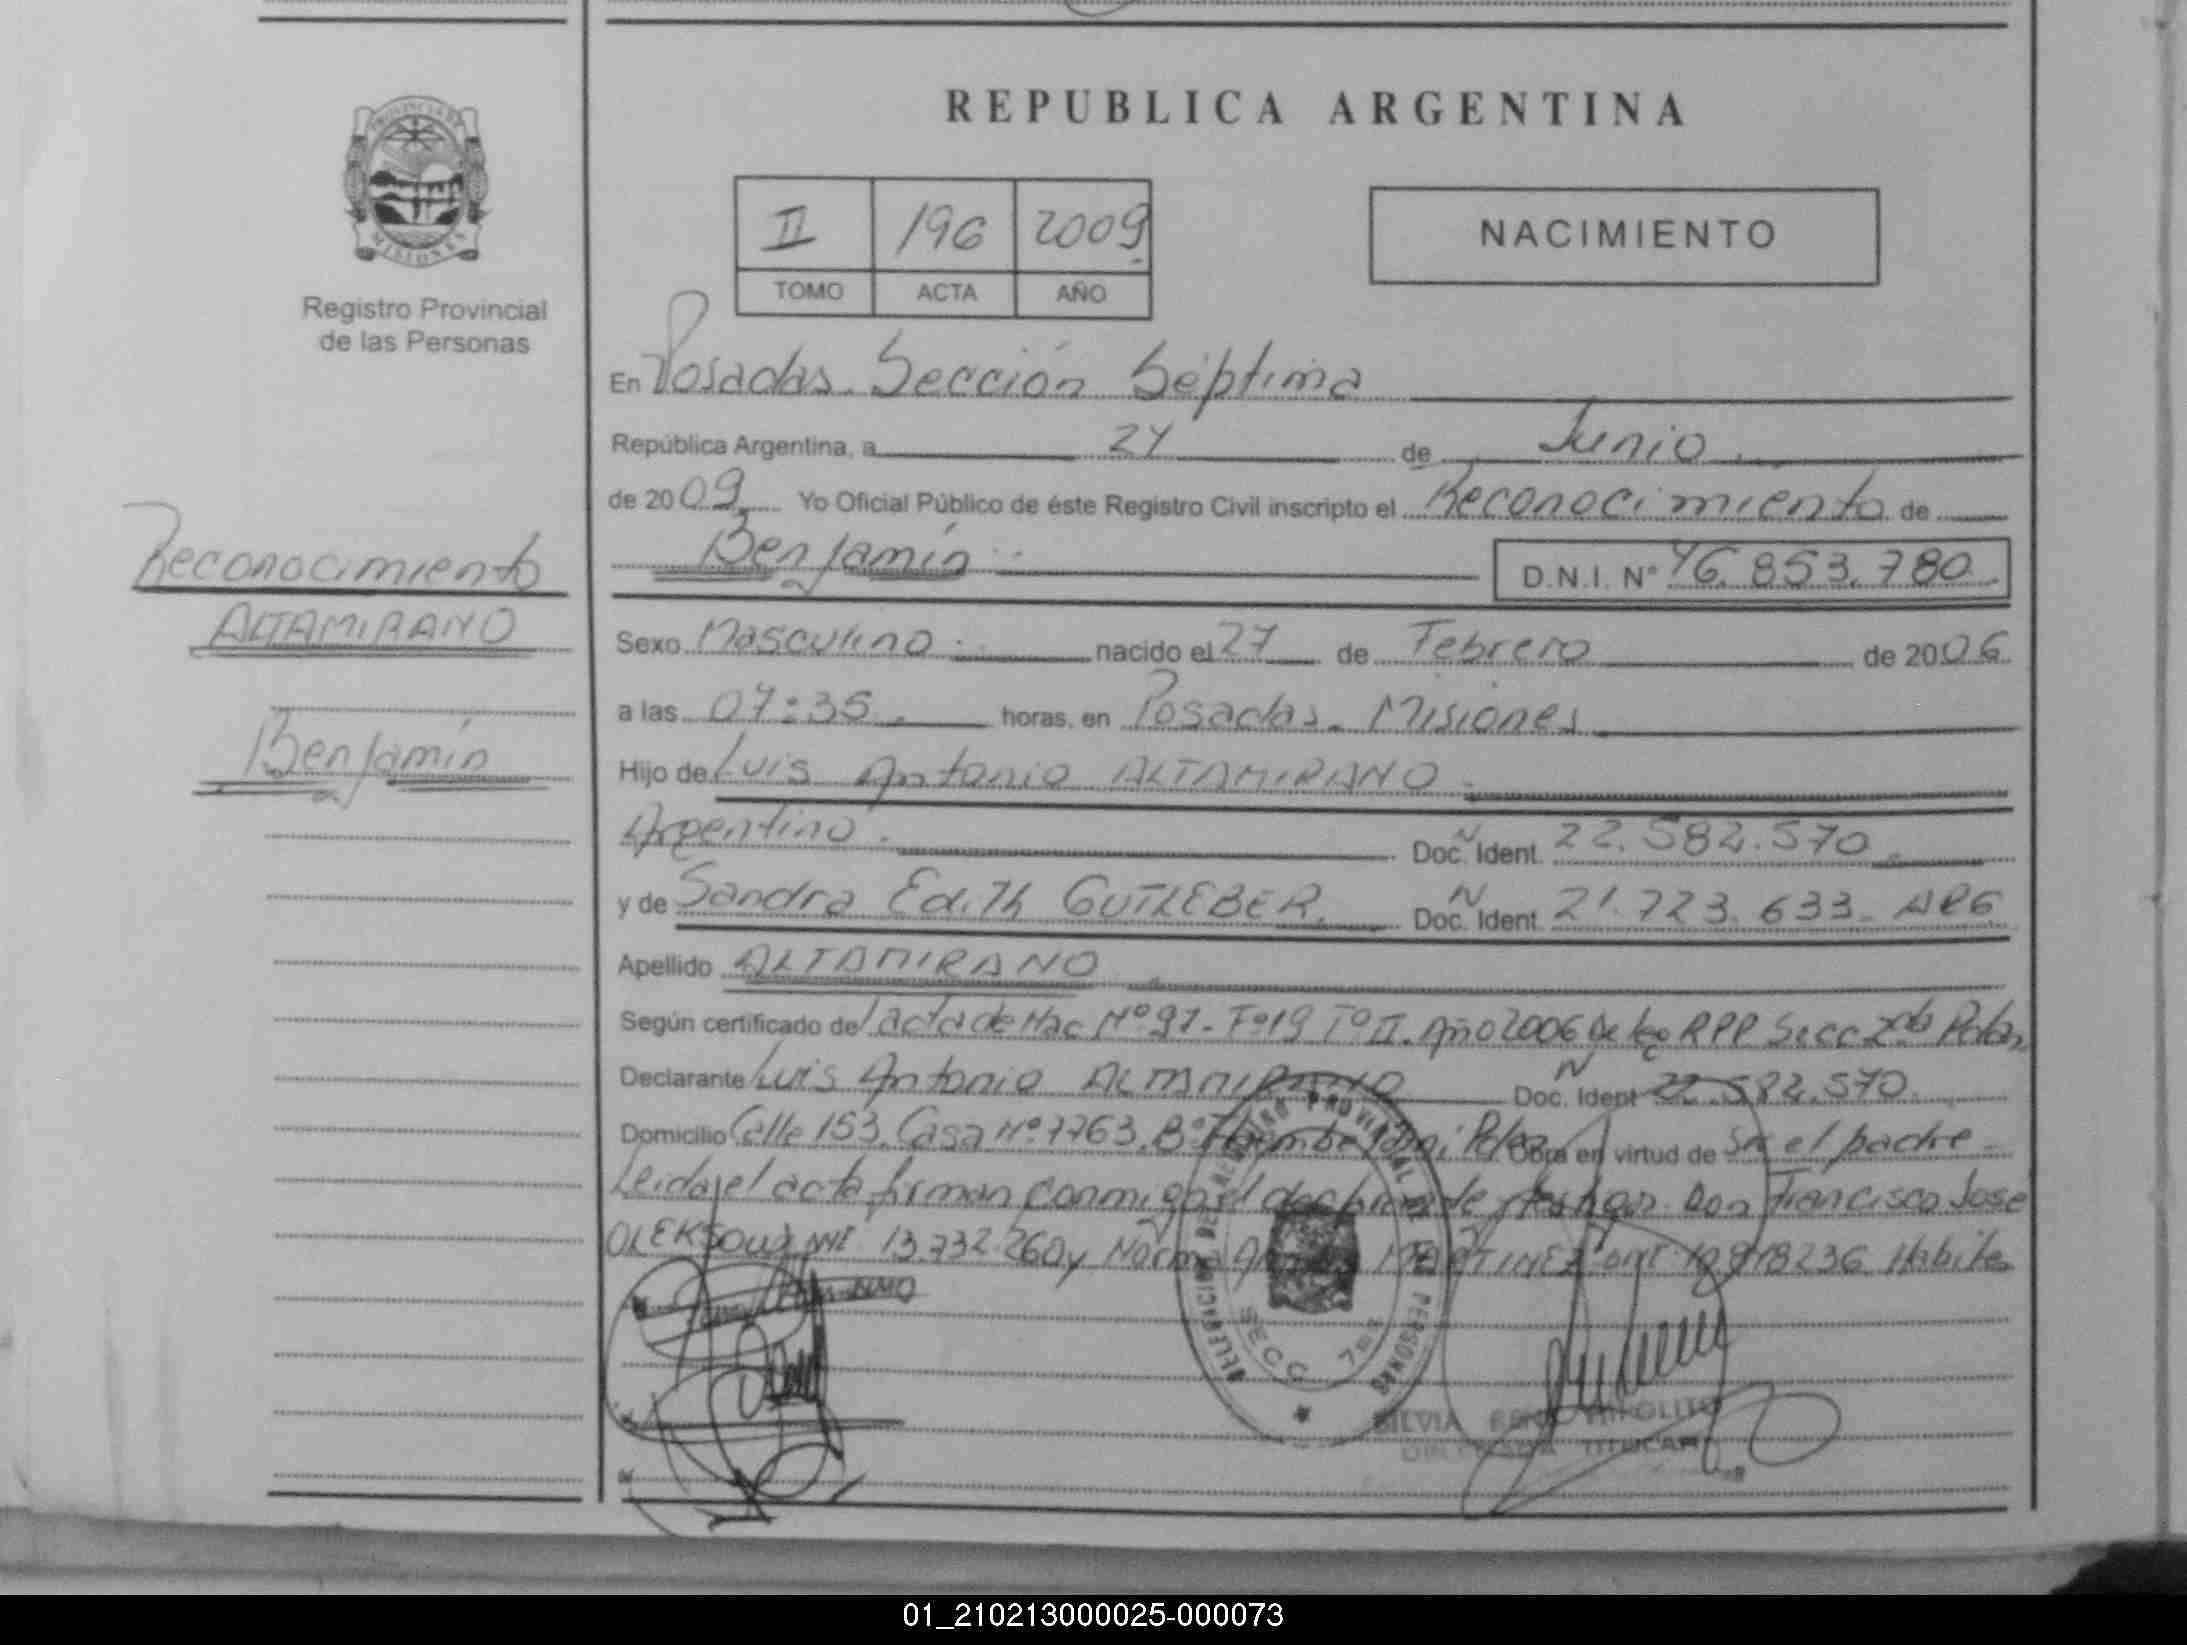 REPUBLICA ARGENTINA
PROVINCIA DE
MISIONES
Registro Provincial
de las Personas
II 196 2009
TOMO ACTA AÑO
NACIMIENTO
En Posadas. Sección Séptima
República Argentina, a 24 de Junio.
de 2009. Yo Oficial Público de éste Registro Civil inscripto el Reconocimiento de
Benjamín D.N.I. N° 46.853.780.
Reconocimiento
ALTAMIRANO
Benjamín
Sexo Masculino nacido el 27 de Febrero de 2006.
a las 07:35. horas, en Posadas. Misiones
Hijo de Luis Antonio ALTAMIRANO
Argentino. Doc. N Ident. 22.582.570
y de Sandra Edith GUTLEBER. Doc. N Ident. 21.723.633. ARG
Apellido ALTAMIRANO
Según certificado de acta de Nac Nº 97- Fº 19 Tº II. Año 2006 RPP Secc 2da
Declarante Luis Antonio ALTAMIRANO Doc. N Ident 22.582.570.
Domicilio Calle 153. Casa Nº 7763. Bº Obra en virtud de Ser el padre
Leida el acta firman conmigo el declarante testigos Don Francisco José
13.732.260 y Norma MARTINEZ Habiles
REGISTRO PROVINCIAL DE LAS PERSONAS
SECC. 7ma
SILVIA HIPOLITO
01_210213000025-000073